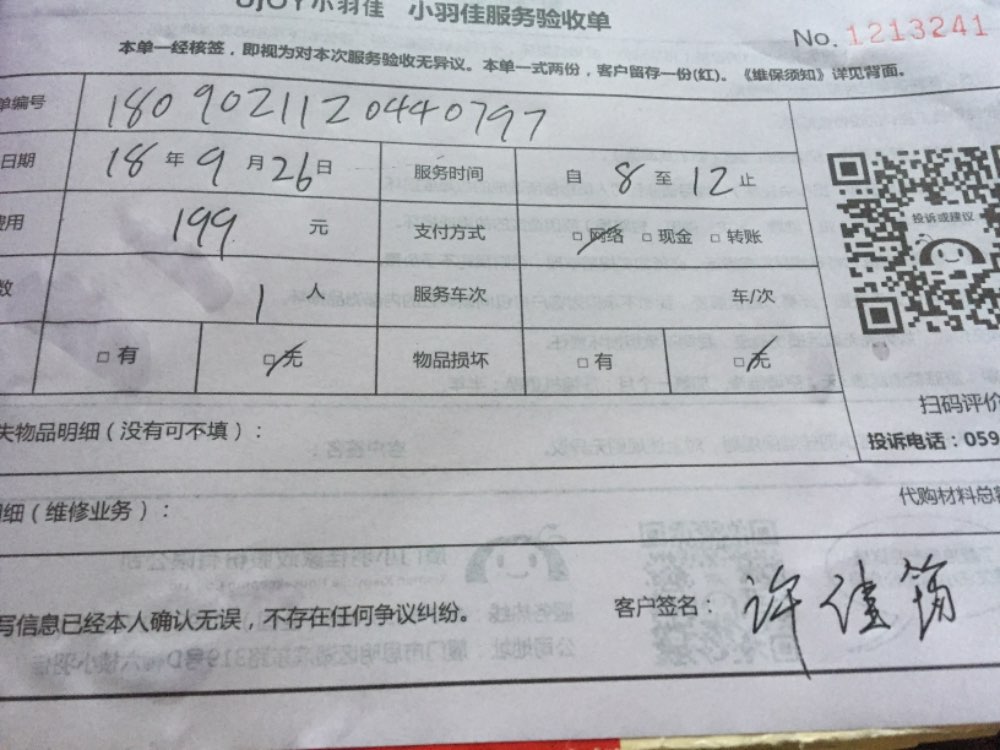 小羽佳 小羽佳服务验收单
No. 1213241
本单一经核签，即视为对本次服务验收无异议。本单一式两份，客户留存一份(红)。《维保须知》详见背面。
单编号 1809021120440797
日期 18 年 9 月 26 日 服务时间 自 8 至 12 止
费用 199 元 支付方式 □ 网络 □ 现金 □ 转账
投诉或建议
数 1 人 服务车次 车/次
□ 有 □ 无 物品损坏 □ 有 □ 无
扫码评价
失物品明细（没有可不填）：
投诉电话：059
细（维修业务）：
代购材料总额
写信息已经本人确认无误，不存在任何争议纠纷。 客户签名：许